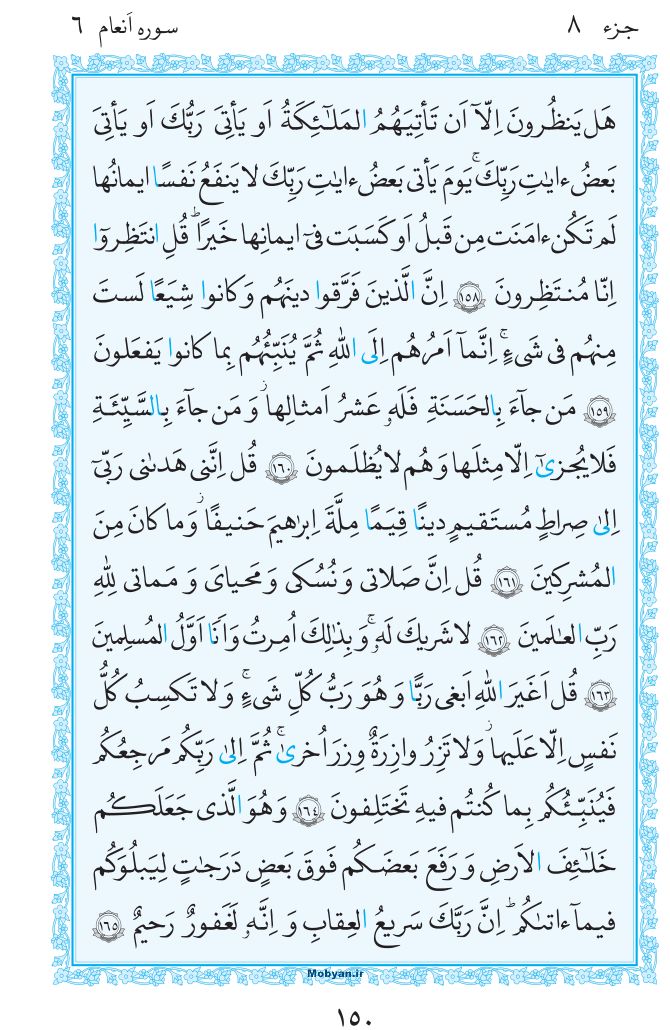 جزء ٨
سوره اَنعام ٦
هَل يَنظُرونَ اِلّآ اَن تَأتِيَهُمُ المَلـٰٓئِكَةُ اَو يَأتِىَ رَبُّكَ اَو يَأتِىَ
بَعضُ ءايٰتِ رَبِّكَ ۗ يَومَ يَأتى بَعضُ ءايٰتِ رَبِّكَ لا يَنفَعُ نَفسًا ايمانُها
لَم تَكُن ءامَنَت مِن قَبلُ اَو كَسَبَت فىٓ ايمانِها خَيرًا ۗ قُلِ انتَظِروٓا
اِنّا مُنتَظِرونَ ﴿١٥٨﴾ اِنَّ الَّذينَ فَرَّقوا دينَهُم وَ كانوا شِيَعًا لَستَ
مِنهُم فى شَىءٍ ۚ اِنَّمآ اَمرُهُم اِلَى اللهِ ثُمَّ يُنَبِّئُهُم بِما كانوا يَفعَلونَ
﴿١٥٩﴾ مَن جآءَ بِالحَسَنَةِ فَلَهو عَشرُ اَمثالِها ۖ وَ مَن جآءَ بِالسَّيِّئَةِ
فَلا يُجزىٰٓ اِلّا مِثلَها وَ هُم لا يُظلَمونَ ﴿١٦٠﴾ قُل اِنَّنى هَدٮٰنى رَبّىٓ
اِلىٰ صِراطٍ مُستَقيمٍ دينًا قِيَمًا مِلَّةَ اِبرٰهيمَ حَنيفًا ۚ وَ ما كانَ مِنَ
المُشرِكينَ ﴿١٦١﴾ قُل اِنَّ صَلاتى وَ نُسُكى وَ مَحياىَ وَ مَماتى لِلّٰهِ
رَبِّ العٰلَمينَ ﴿١٦٢﴾ لا شَريكَ لَهو ۖ وَ بِذٰلِكَ اُمِرتُ وَ اَنَا اَوَّلُ المُسلِمينَ
﴿١٦٣﴾ قُل اَغَيرَ اللهِ اَبغى رَبًّا وَ هُوَ رَبُّ كُلِّ شَىءٍ ۚ وَ لا تَكسِبُ كُلُّ
نَفسٍ اِلّا عَلَيها ۚ وَ لا تَزِرُ وازِرَةٌ وِزرَ اُخرىٰ ۚ ثُمَّ اِلىٰ رَبِّكُم مَرجِعُكُم
فَيُنَبِّئُكُم بِما كُنتُم فيهِ تَختَلِفونَ ﴿١٦٤﴾ وَ هُوَ الَّذى جَعَلَكُم
خَلـٰٓئِفَ الاَرضِ وَ رَفَعَ بَعضَكُم فَوقَ بَعضٍ دَرَجٰتٍ لِيَبلُوَكُم
فيمآ ءاتٮٰكُم ۗ اِنَّ رَبَّكَ سَريعُ العِقابِ وَ اِنَّهو لَغَفورٌ رَحيمٌ ﴿١٦٥﴾
Mobyan.ir
١٥٠